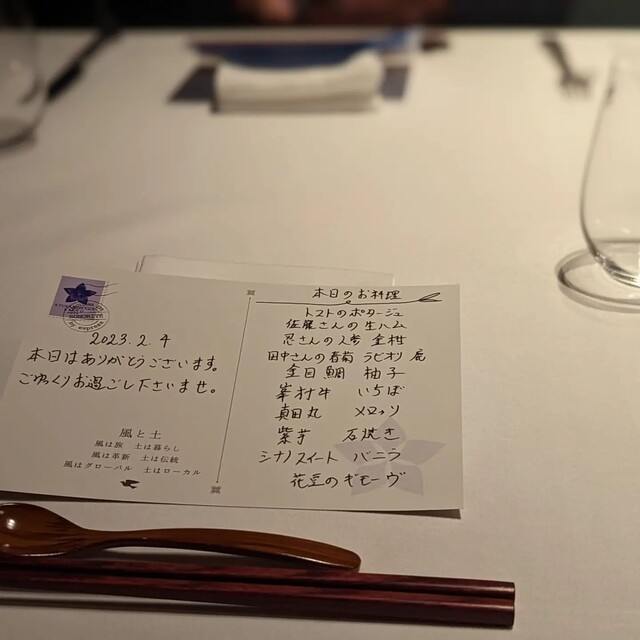 2023.2.4
本日はありがとうございます。
ごゆっくりお過ごし下さいませ。
風と土
風は旅 土は暮らし
風は革新 土は伝統
風はグローバル 土はローカル
本日のお料理
トマトのポタージュ
佐藤さんの生ハム
忍さんの人参 金柑
田中さんの春菊 ラビオリ 鹿
金目鯛 柚子
峯村牛 いちぼ
真田丸 メロッソ
紫芋 石焼き
シナノスイート バニラ
花豆のギモーヴ